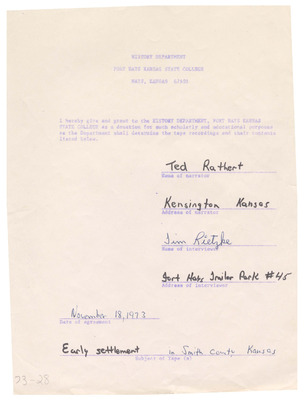 HISTORY DEPARTMENT
FORT HAYS KANSAS STATE COLLEGE
HAYS, KANSAS 67601
I hereby give and grant to the HISTORY DEPARTMENT, FORT HAYS KANSAS
STATE COLLEGE as a donation for such scholarly and educational purposes
as the Department shall determine the tape recordings and their contents
listed below.
Ted Rathert
Name of narrator
Kensington Kansas
Address of narrator
Jim Rietzke
Name of interviewer
Fort Hays Trailer Park #45
Address of interviewer
November 18, 1973
Date of agreement
Early settlement in Smith County Kansas
Subject of Tape (s)
73-28